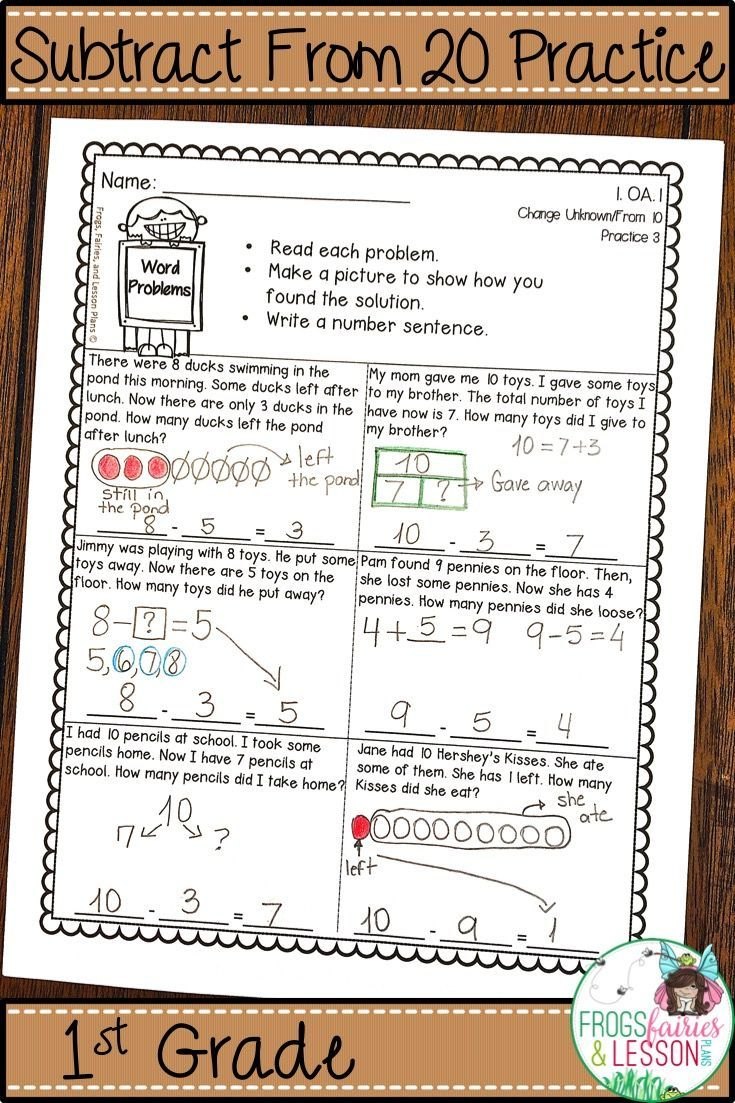 Subtract From 20 Practice
Name:
1. OA. 1
Change Unknown/From 10
Practice 3
Frogs, Fairies, and Lesson Plans ©
Word
Problems
• Read each problem.
• Make a picture to show how you
found the solution.
• Write a number sentence.
There were 8 ducks swimming in the
pond this morning. Some ducks left after
lunch. Now there are only 3 ducks in the
pond. How many ducks left the pond
after lunch?
left
the pond
still in
the pond
8 - 5 = 3
My mom gave me 10 toys. I gave some toys
to my brother. The total number of toys I
have now is 7. How many toys did I give to
my brother?
10 = 7+3
10
7 ? Gave away
10 - 3 = 7
Jimmy was playing with 8 toys. He put some
toys away. Now there are 5 toys on the
floor. How many toys did he put away?
8 - ? = 5
5, 6, 7, 8
8 - 3 = 5
Pam found 9 pennies on the floor. Then,
she lost some pennies. Now she has 4
pennies. How many pennies did she loose?
4 + 5 = 9 9 - 5 = 4
9 - 5 = 4
I had 10 pencils at school. I took some
pencils home. Now I have 7 pencils at
school. How many pencils did I take home?
10
7 ?
10 - 3 = 7
Jane had 10 Hershey's Kisses. She ate
some of them. She has 1 left. How many
Kisses did she eat?
she
ate
left
10 - 9 = 1
1st Grade
FROGS fairies
& LESSON PLANS